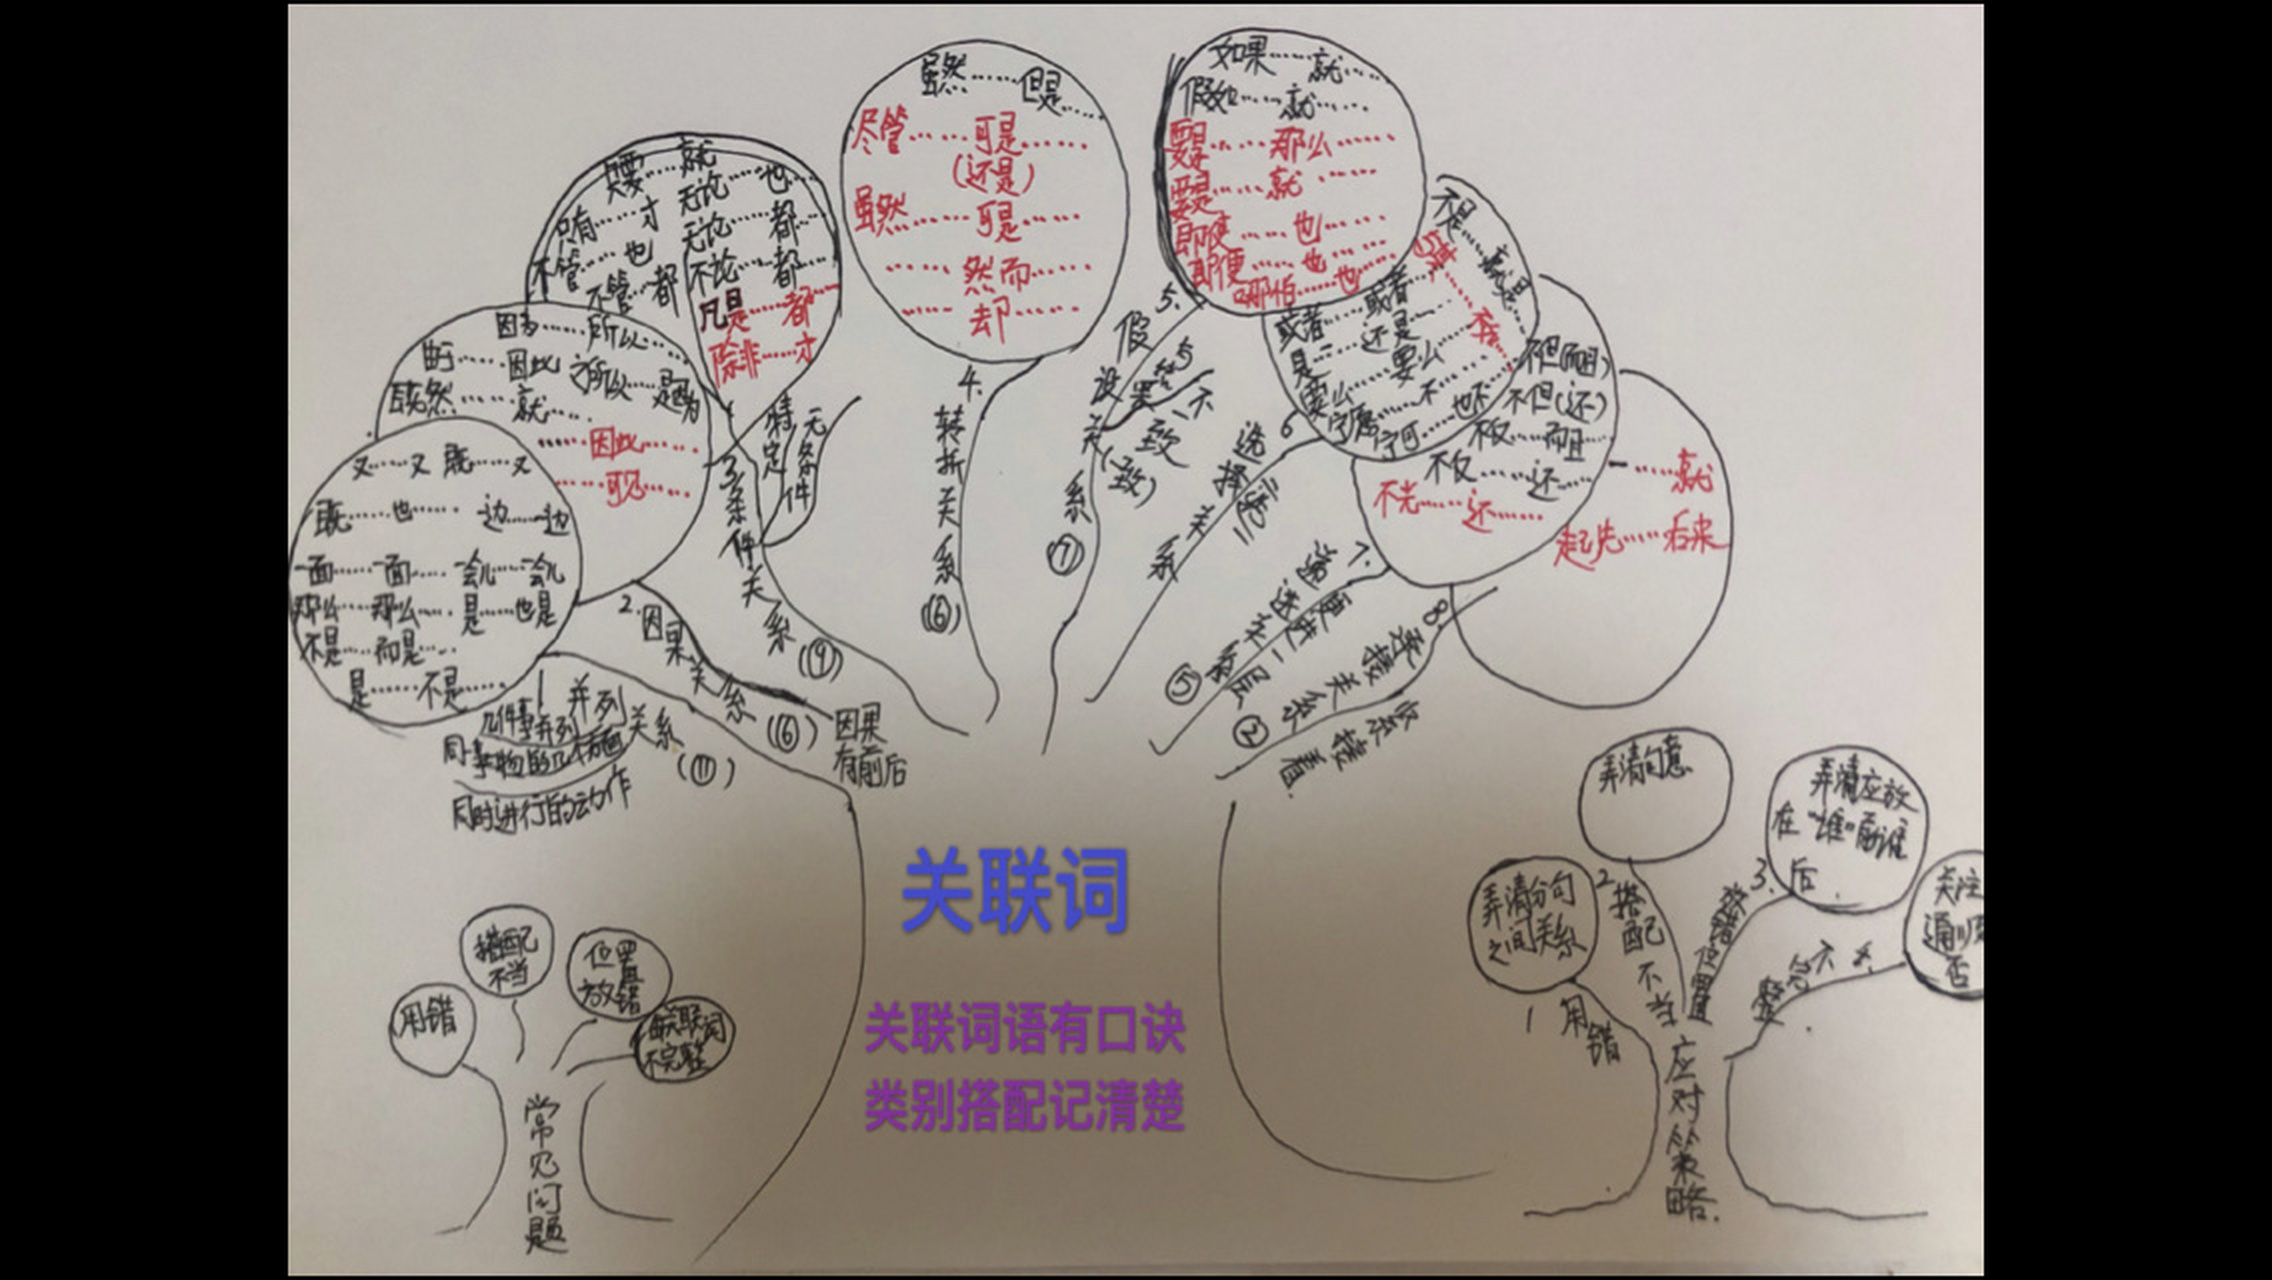 又……又 既……又
既……也…… 一边……一边
一面……一面…… 一会儿……一会儿
那么……那么…… 是……也是
不是……而是……
是……不是……
1 并列关系
(11)
几件事并列
同一事物的几个方面
同时进行的动作
因为……所以……
由于……因此
之所以……是因为
既然……就……
……因此……
……可见……
2.因果关系
(6)
因果
有前后
只要……就
只有……才
不管……也
不管……都
无论……也
无论……都
不论……都
凡是……都……
除非……才
3条件关系
(9)
特定
无条件
虽然……但是……
尽管……可是……
(还是)
虽然……可是……
……然而……
……却……
4.
转折关系
(6)
如果……就……
假如……就……
要是……那么……
要是……就……
即使……也……
即便……也……
哪怕……也
5.
假设关系
(7)
与结果不一致
(一致)
不是……就是……
与其……不如……
或者……或者……
是……还是……
要么……要么……
宁愿……不……
宁可……也不
6
选择关系
不但(而且)
不但(还)
不仅……而且……
不仅……还……
不光……还……
7.
递进关系
(5)
更进一层
一……就
起先……后来
8.
承接关系
(2)
关联词
关联词语有口诀
类别搭配记清楚
用错
搭配
不当
位置
放错
关联词
不完整
常见问题
弄清分句
之间关系
1 用错
弄清句意
2 搭配不当
弄清应放
在“谁”前谁
后
3.放错位置
关注
否
4.
不完整
应对策略.